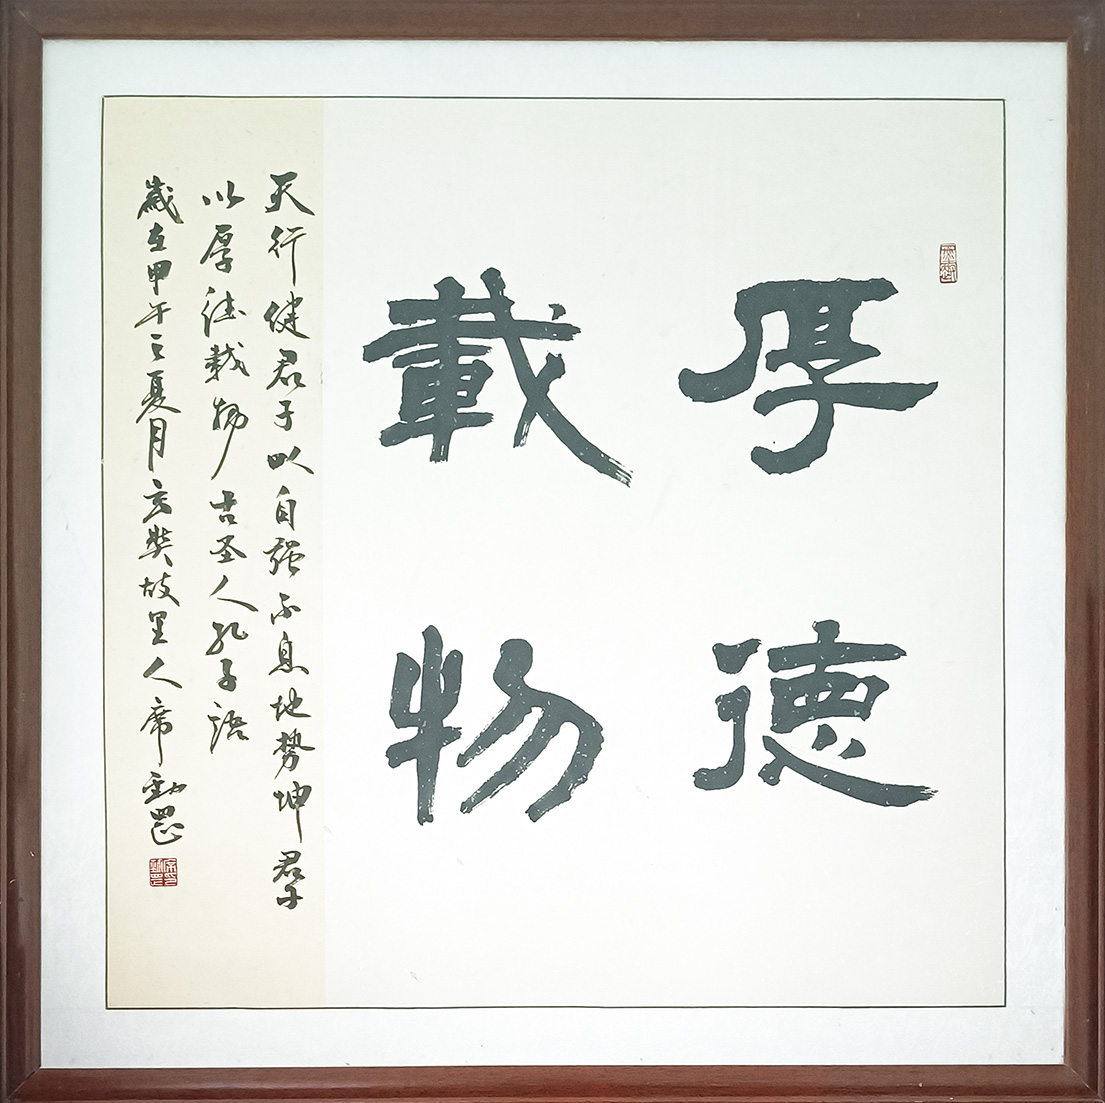 厚德
載物
天行健君子以自强不息地势坤君子
以厚德载物古圣人孔子語
歲在甲午之夏月玄奘故里人席劲罡